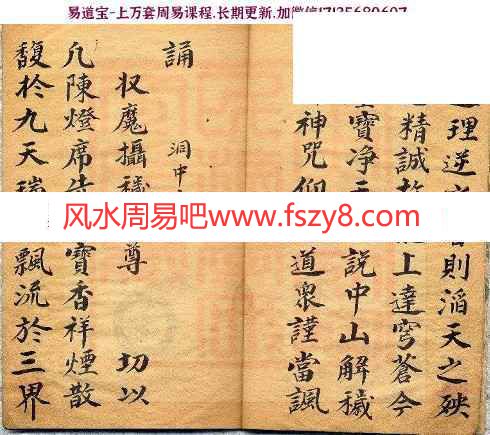 易道宝-上万套周易课程.长期更新.加微信17135680607
理逆 則滔天之殃
精誠 上達穹蒼今
寶净 說中山解穢
神咒仰 道衆謹當諷
誦 洞中
収魔攝穢 尊 切以
凡陳燈席 寶香祥煙散
馥於九天瑞 飄流於三界
风水周易吧www.fszy8.com